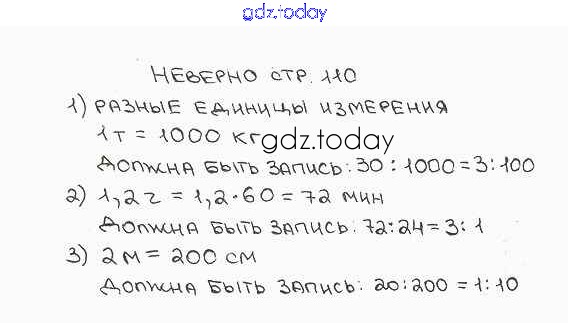 gdz.today
НЕВЕРНО СТР. 110
1) РАЗНЫЕ ЕДИНИЦЫ ИЗМЕРЕНИЯ
1т = 1000 кг gdz.today
ДОЛЖНА БЫТЬ ЗАПИСЬ: 30 : 1000 = 3 : 100
2) 1,2 г = 1,2 · 60 = 72 МИН
ДОЛЖНА БЫТЬ ЗАПИСЬ: 72 : 24 = 3 : 1
3) 2 М = 200 СМ
ДОЛЖНА БЫТЬ ЗАПИСЬ: 20 : 200 = 1 : 10